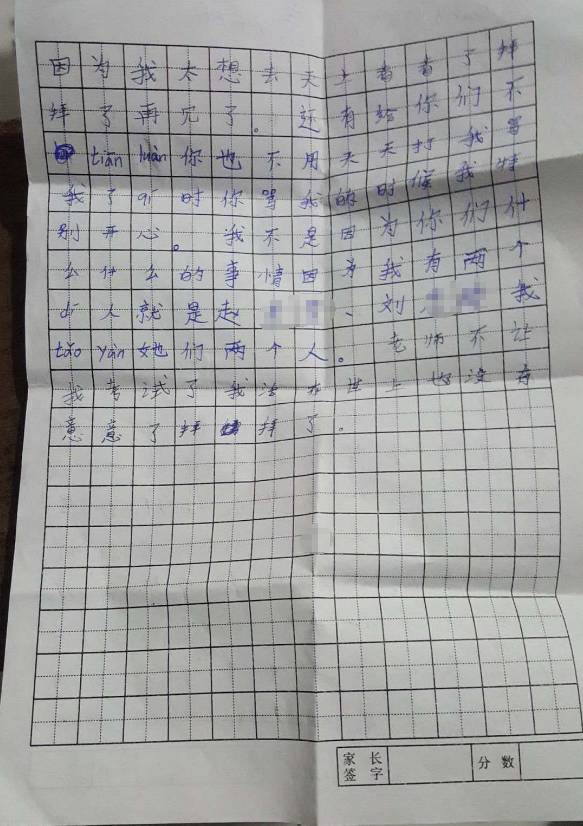 因为我太想去天上看看了拜
拜了再见了。还有给你们不
tiān luàn你也不用天天打我骂
我了 时你骂我的时候我特
别开心。我不是因为你们什
么什么的事情因为我有两个
人就是赵 、刘 我
tǎo yàn她们两个人。老师不让
我考试了我活在世上也没有
意意了拜拜了。
家长签字
分数